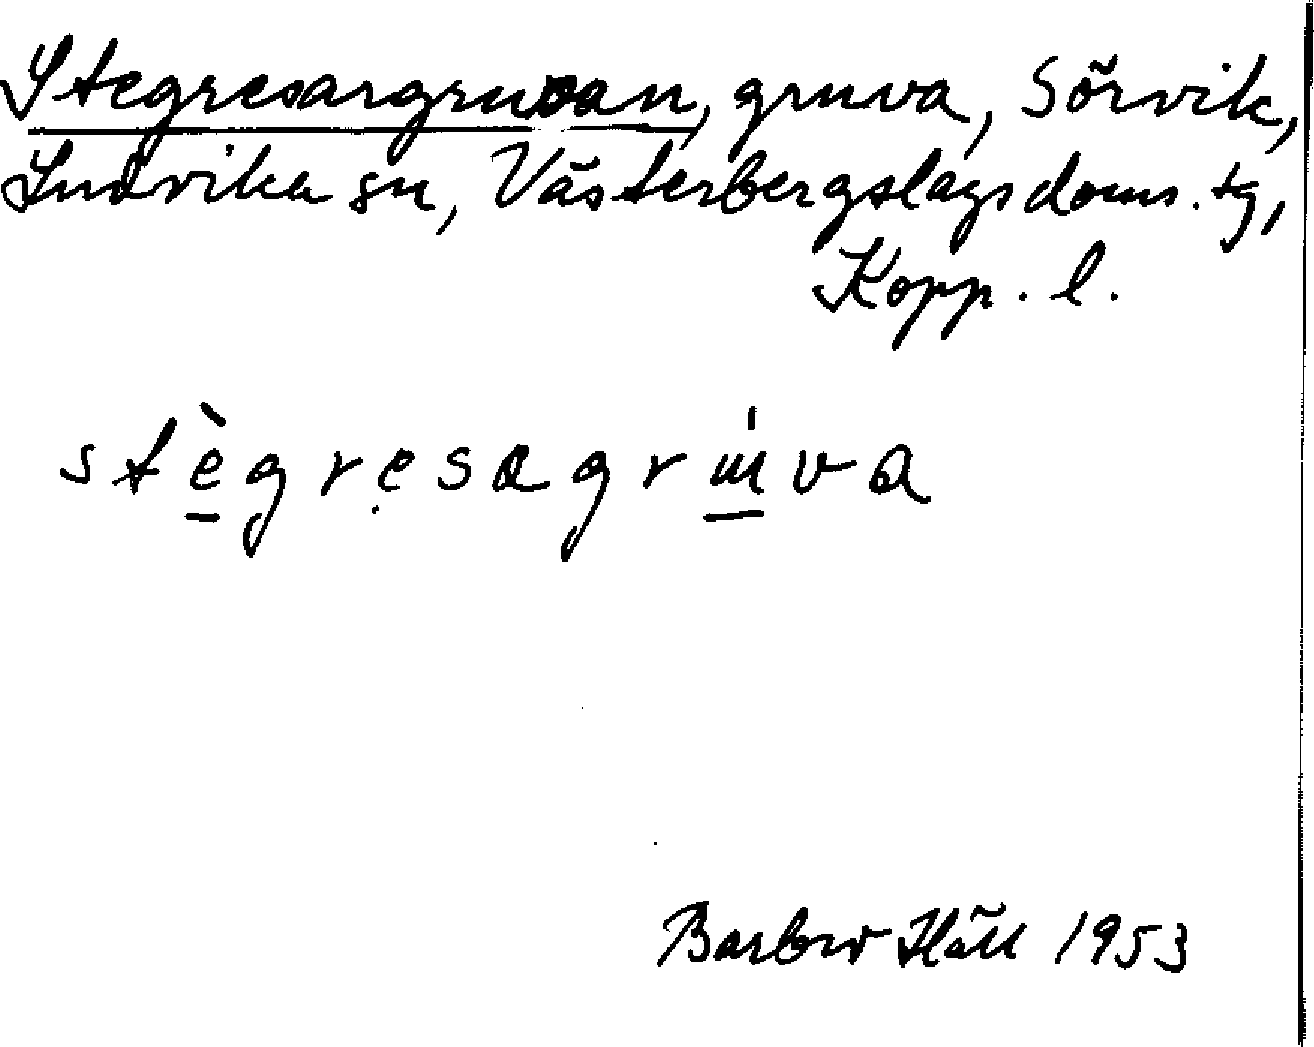 Stegresargruvan, gruva, Sörvik,
Ludvika sn, Västerbergslags doms. tg,
Kopp. l.
stègresagrúva
Barbro Häll 1953